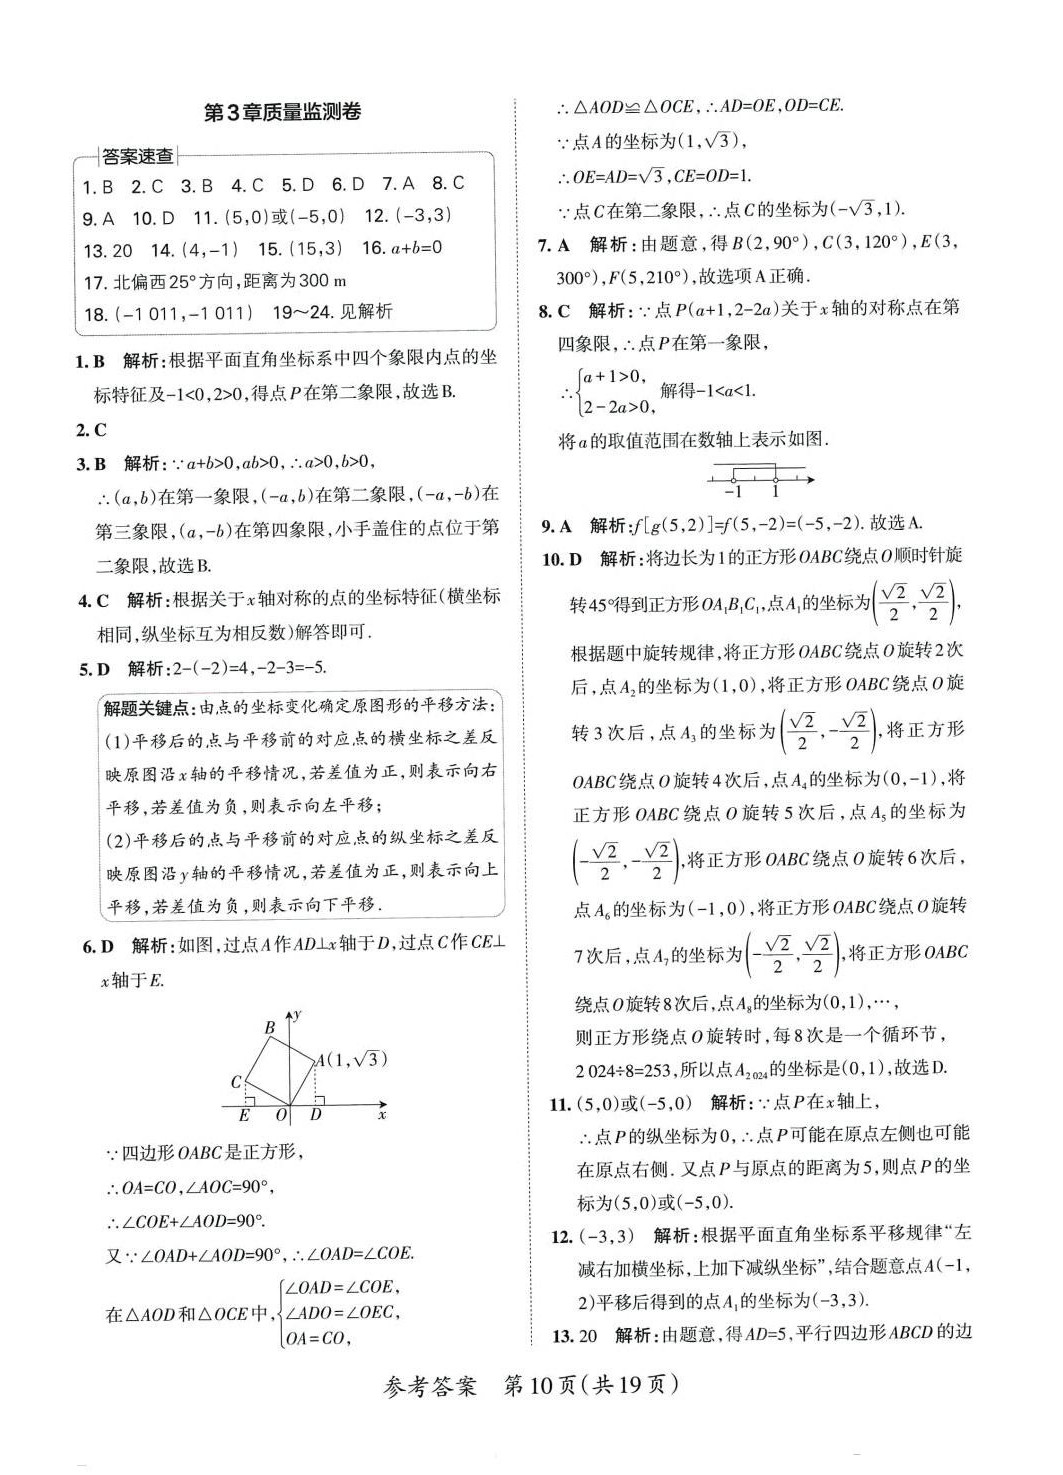 第3章质量监测卷
答案速查
1. B 2. C 3. B 4. C 5. D 6. D 7. A 8. C
9. A 10. D 11. (5,0)或(-5,0) 12. (-3,3)
13. 20 14. (4,-1) 15. (15,3) 16. a+b=0
17. 北偏西25°方向,距离为300 m
18. (-1 011,-1 011) 19～24. 见解析
1. B 解析:根据平面直角坐标系中四个象限内点的坐
标特征及-1<0,2>0,得点P在第二象限,故选B.
2. C
3. B 解析:∵a+b>0,ab>0,∴a>0,b>0,
∴(a,b)在第一象限,(-a,b)在第二象限,(-a,-b)在
第三象限,(a,-b)在第四象限,小手盖住的点位于第
二象限,故选B.
4. C 解析:根据关于x轴对称的点的坐标特征(横坐标
相同,纵坐标互为相反数)解答即可.
5. D 解析:2-(-2)=4,-2-3=-5.
解题关键点:由点的坐标变化确定原图形的平移方法:
(1)平移后的点与平移前的对应点的横坐标之差反
映原图沿x轴的平移情况,若差值为正,则表示向右
平移,若差值为负,则表示向左平移;
(2)平移后的点与平移前的对应点的纵坐标之差反
映原图沿y轴的平移情况,若差值为正,则表示向上
平移,若差值为负,则表示向下平移.
6. D 解析:如图,过点A作AD⊥x轴于D,过点C作CE⊥
x轴于E.
y
B
A(1,√3)
C
E O D x
∵四边形OABC是正方形,
∴OA=CO,∠AOC=90°,
∴∠COE+∠AOD=90°.
又∵∠OAD+∠AOD=90°,∴∠OAD=∠COE.
在△AOD和△OCE中,{∠OAD=∠COE,
∠ADO=∠OEC,
OA=CO,
∴△AOD≌△OCE,∴AD=OE,OD=CE.
∵点A的坐标为(1,√3),
∴OE=AD=√3,CE=OD=1.
∵点C在第二象限,∴点C的坐标为(-√3,1).
7. A 解析:由题意,得B(2,90°),C(3,120°),E(3,
300°),F(5,210°),故选项A正确.
8. C 解析:∵点P(a+1,2-2a)关于x轴的对称点在第
四象限,∴点P在第一象限,
∴{a+1>0,
2-2a>0, 解得-1<a<1.
将a的取值范围在数轴上表示如图.
-1 1
9. A 解析:f[g(5,2)]=f(5,-2)=(-5,-2). 故选A.
10. D 解析:将边长为1的正方形OABC绕点O顺时针旋
转45°得到正方形OA₁B₁C₁,点A₁的坐标为(√2/2,√2/2),
根据题中旋转规律,将正方形OABC绕点O旋转2次
后,点A₂的坐标为(1,0),将正方形OABC绕点O旋
转3次后,点A₃的坐标为(√2/2,-√2/2),将正方形
OABC绕点O旋转4次后,点A₄的坐标为(0,-1),将
正方形OABC绕点O旋转5次后,点A₅的坐标为
(-√2/2,-√2/2),将正方形OABC绕点O旋转6次后,
点A₆的坐标为(-1,0),将正方形OABC绕点O旋转
7次后,点A₇的坐标为(-√2/2,√2/2),将正方形OABC
绕点O旋转8次后,点A₈的坐标为(0,1),…,
则正方形绕点O旋转时,每8次是一个循环节,
2 024÷8=253,所以点A₂₀₂₄的坐标是(0,1),故选D.
11. (5,0)或(-5,0) 解析:∵点P在x轴上,
∴点P的纵坐标为0,∴点P可能在原点左侧也可能
在原点右侧. 又点P与原点的距离为5,则点P的坐
标为(5,0)或(-5,0).
12. (-3,3) 解析:根据平面直角坐标系平移规律“左
减右加横坐标,上加下减纵坐标”,结合题意点A(-1,
2)平移后得到的点A₁的坐标为(-3,3).
13. 20 解析:由题意,得AD=5,平行四边形ABCD的边
参考答案 第10页(共19页)